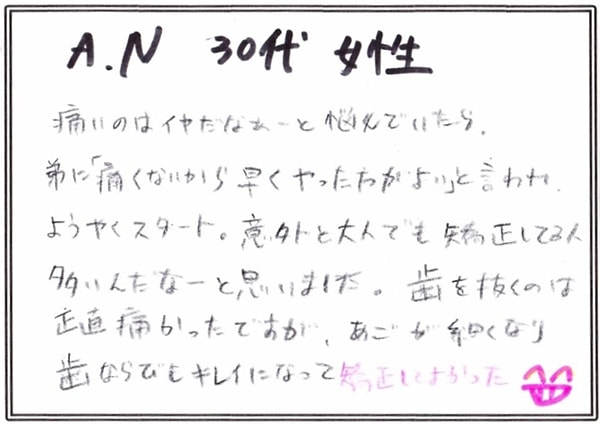 A.N 30代 女性
痛いのはイヤだなぁーと悩んでいたら、
弟に「痛くないから早くやった方がよい」と言われ、
ようやくスタート。意外と大人でも矯正してる人
多いんだなーと思いました。歯を抜くのは
正直痛かったですが、あごが細くなり
歯ならびもキレイになって矯正してよかった